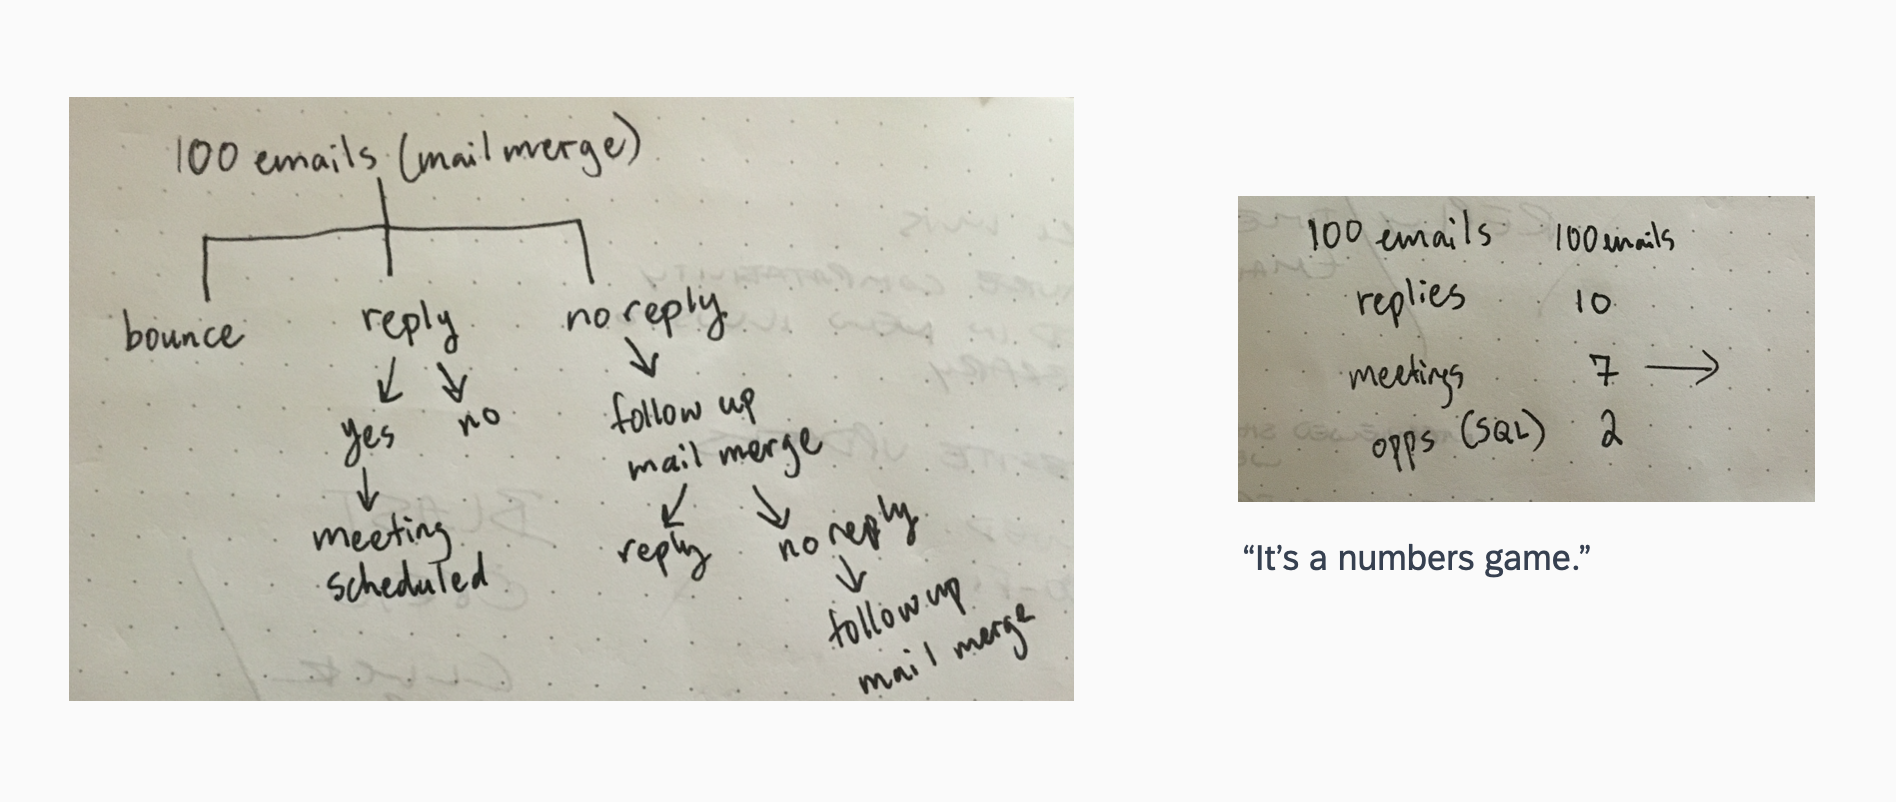 100 emails (mail merge)
bounce
reply
no reply
yes
no
meeting
scheduled
follow up
mail merge
reply
no reply
follow up
mail merge
100 emails 100 emails
replies 10
meetings 7 →
opps (SQL) 2
“It’s a numbers game.”